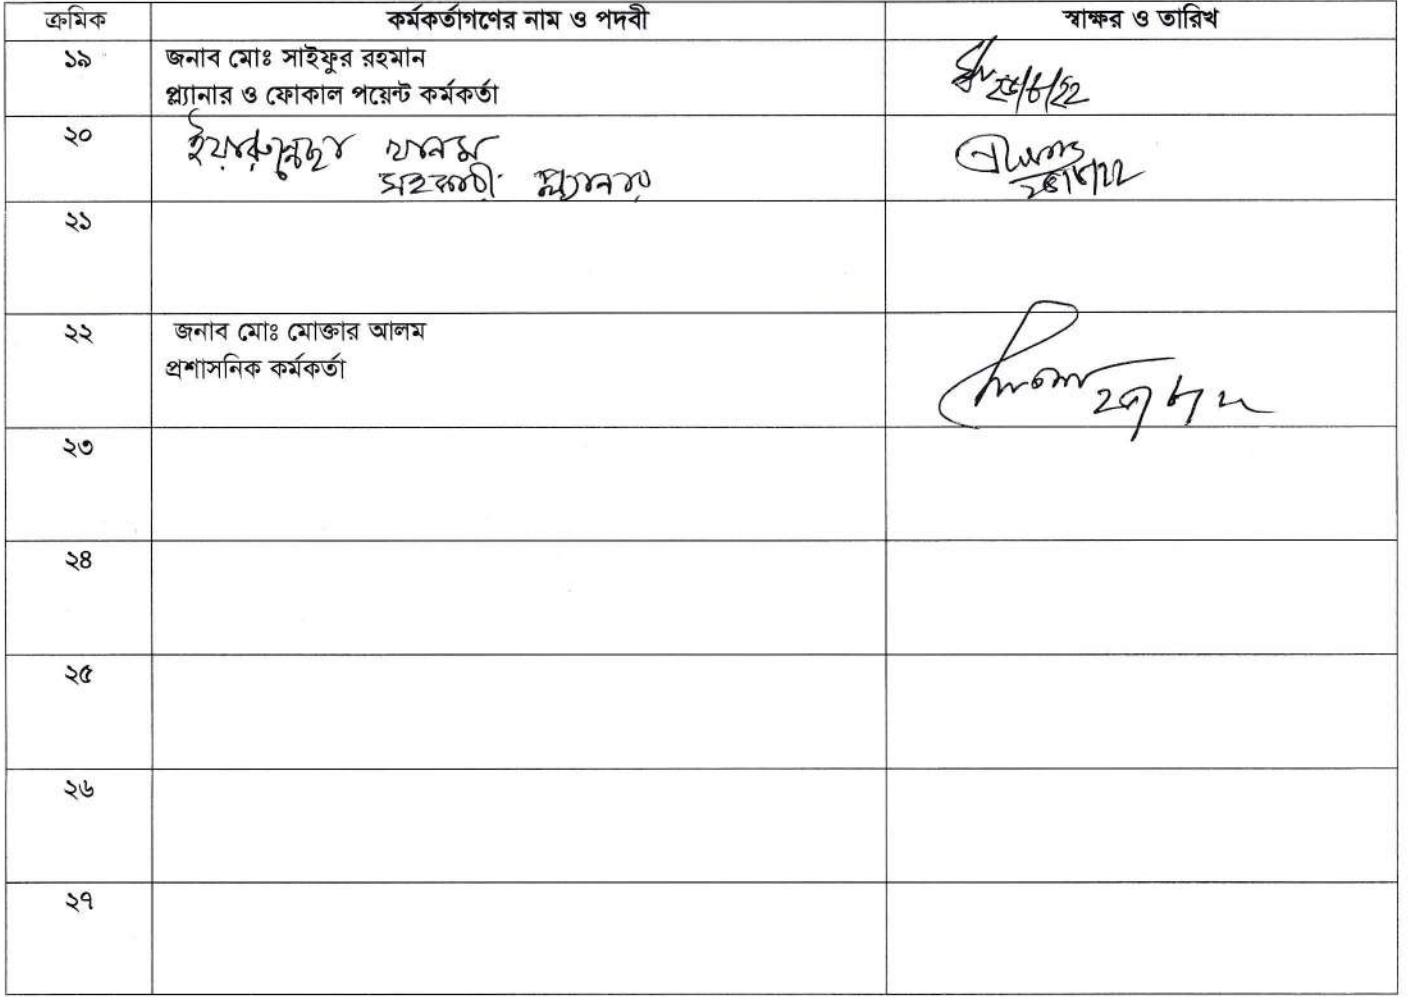 ক্রমিক কর্মকর্তাগণের নাম ও পদবী স্বাক্ষর ও তারিখ
১৯ জনাব মোঃ সাইফুর রহমান
প্ল্যানার ও ফোকাল পয়েন্ট কর্মকর্তা
২০ ইয়ারুন্নেছা খানম
সহকারী প্ল্যানার
২১
২২ জনাব মোঃ মোক্তার আলম
প্রশাসনিক কর্মকর্তা
২৩
২৪
২৫
২৬
২৭